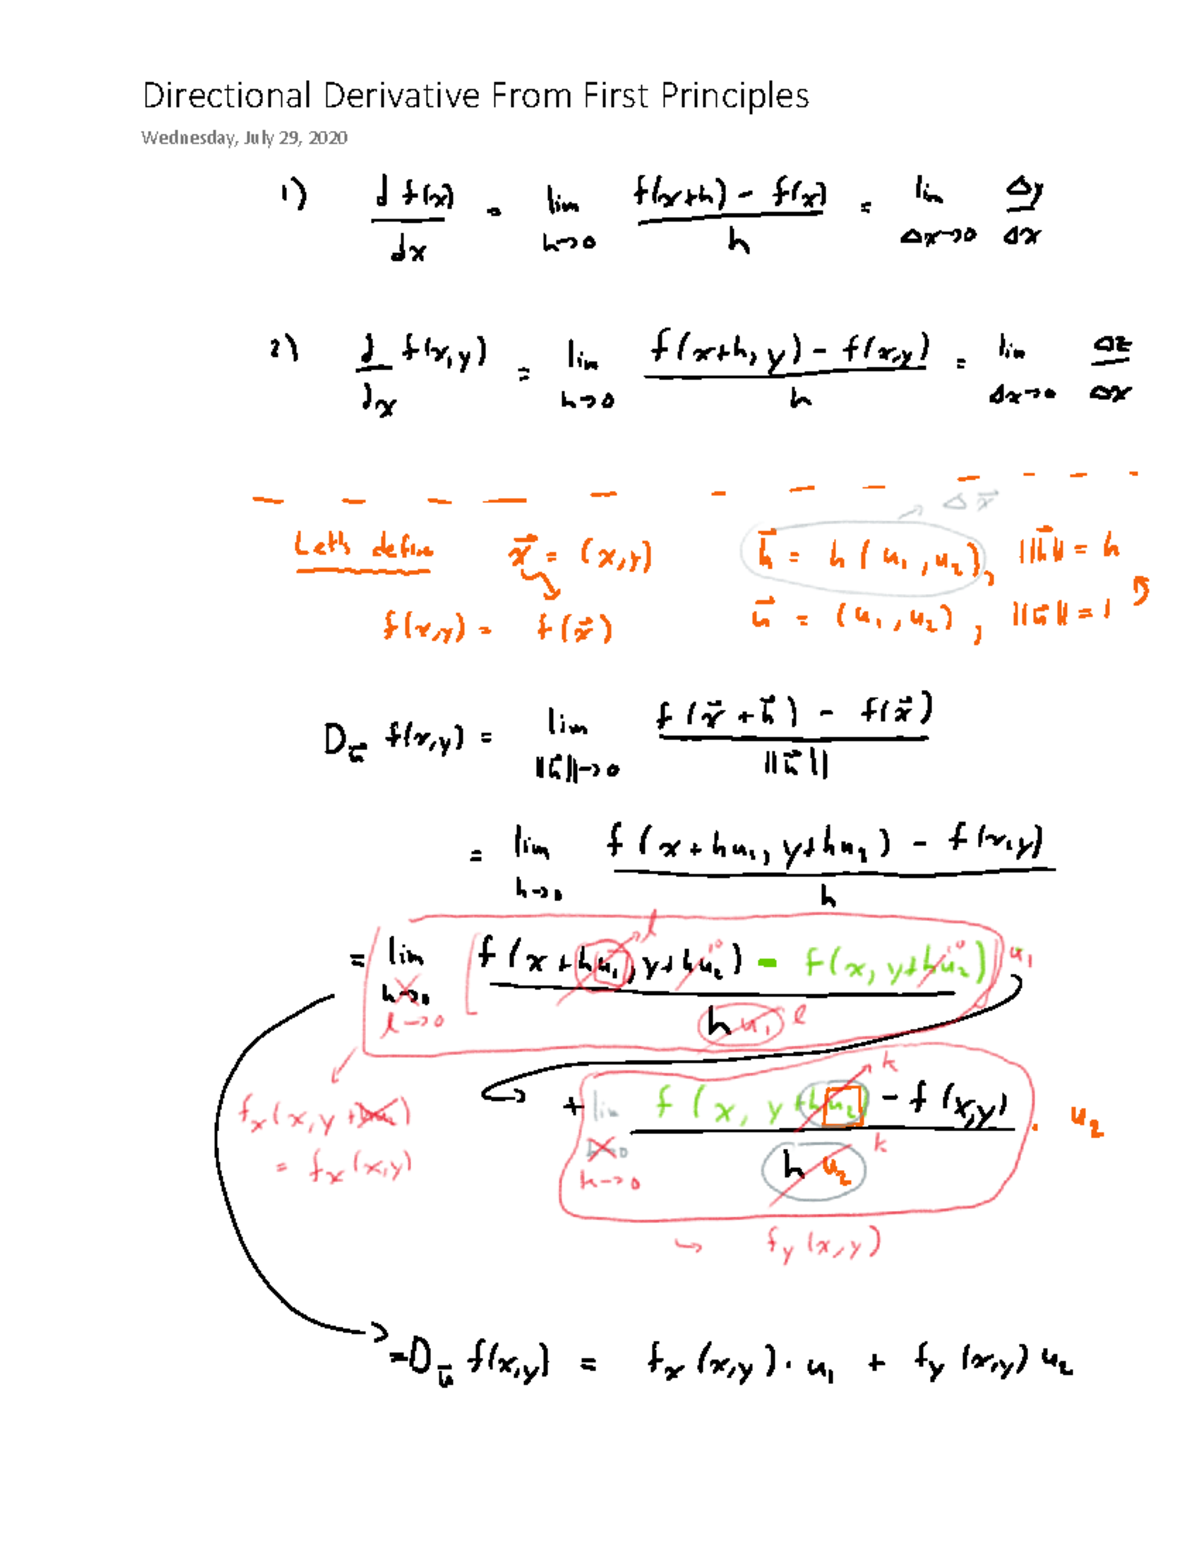 Directional Derivative From First Principles
Wednesday, July 29, 2020
1) d f(x)/dx = lim h→0 (f(x+h) - f(x))/h = lim Δx→0 Δy/Δx
2) ∂/∂x f(x,y) = lim h→0 (f(x+h, y) - f(x,y))/h = lim Δx→0 Δz/Δx
Δx⃗
Let's define x⃗ = (x,y) h⃗ = h(u₁,u₂), ||h⃗|| = h
f(x,y) = f(x⃗) u⃗ = (u₁,u₂), ||u⃗|| = 1
D_u⃗ f(x,y) = lim ||h⃗||→0 (f(x⃗+h⃗) - f(x⃗))/||h⃗||
= lim h→0 (f(x+hu₁, y+hu₂) - f(x,y))/h
= lim h→0 l→0 [(f(x+hu₁, y+hu₂) - f(x, y+hu₂))/(hu₁)] u₁
l 0 0 l
f_x(x, y+hu₂)
= f_x(x,y)
+ lim h→0 (f(x, y+hu₂) - f(x,y))/(hu₂) · u₂
k k
→ f_y(x,y)
= D_u⃗ f(x,y) = f_x(x,y)·u₁ + f_y(x,y)u₂